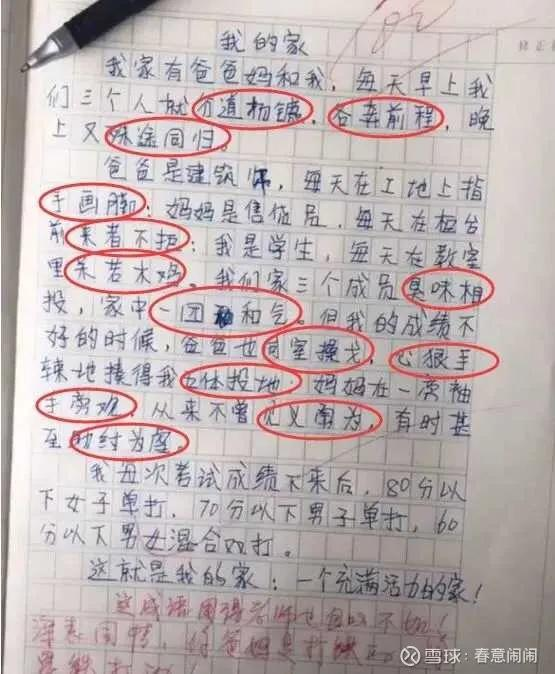 我的家
我家有爸爸妈和我，每天早上我
们三个人就分道扬镳，各奔前程，晚
上又殊途同归。
爸爸是建筑师，每天在工地上指
手画脚；妈妈是售货员，每天在柜台
前来者不拒；我是学生，每天在教室
里呆若木鸡。我们家三个成员臭味相
投，家中一团和气。但我的成绩不
好的时候，爸爸也同室操戈，心狠手
辣地揍得我五体投地。妈妈在一旁袖
手旁观，从来不曾见义勇为，有时甚
至助纣为虐。
我每次考试成绩下来后，80分以
下女子单打，70分以下男子单打，60
分以下男女混合双打。
这就是我的家：一个充满活力的家！
这成语用得老师也自叹不如！
深表同情，你爸妈是打
雪球：春意闹闹